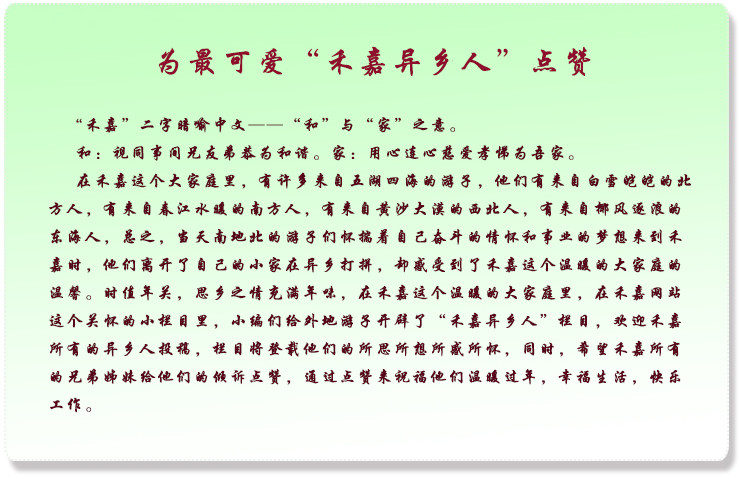 为最可爱“禾嘉异乡人”点赞
“禾嘉”二字暗喻中文——“和”与“家”之意。
和：视同事间兄友弟恭为和谐。家：用心连心慈爱孝悌为吾家。
在禾嘉这个大家庭里，有许多来自五湖四海的游子，他们有来自白雪皑皑的北
方人，有来自春江水暖的南方人，有来自黄沙大漠的西北人，有来自椰风逐浪的
东海人，总之，当天南地北的游子们怀揣着自己奋斗的情怀和事业的梦想来到禾
嘉时，他们离开了自己的小家在异乡打拼，却感受到了禾嘉这个温暖的大家庭的
温馨。时值年关，思乡之情充满年味，在禾嘉这个温暖的大家庭里，在禾嘉网站
这个关怀的小栏目里，小编们给外地游子开辟了“禾嘉异乡人”栏目，欢迎禾嘉
所有的异乡人投稿，栏目将登载他们的所思所想所感所怀，同时，希望禾嘉所有
的兄弟姊妹给他们的倾诉点赞，通过点赞来祝福他们温暖过年，幸福生活，快乐
工作。